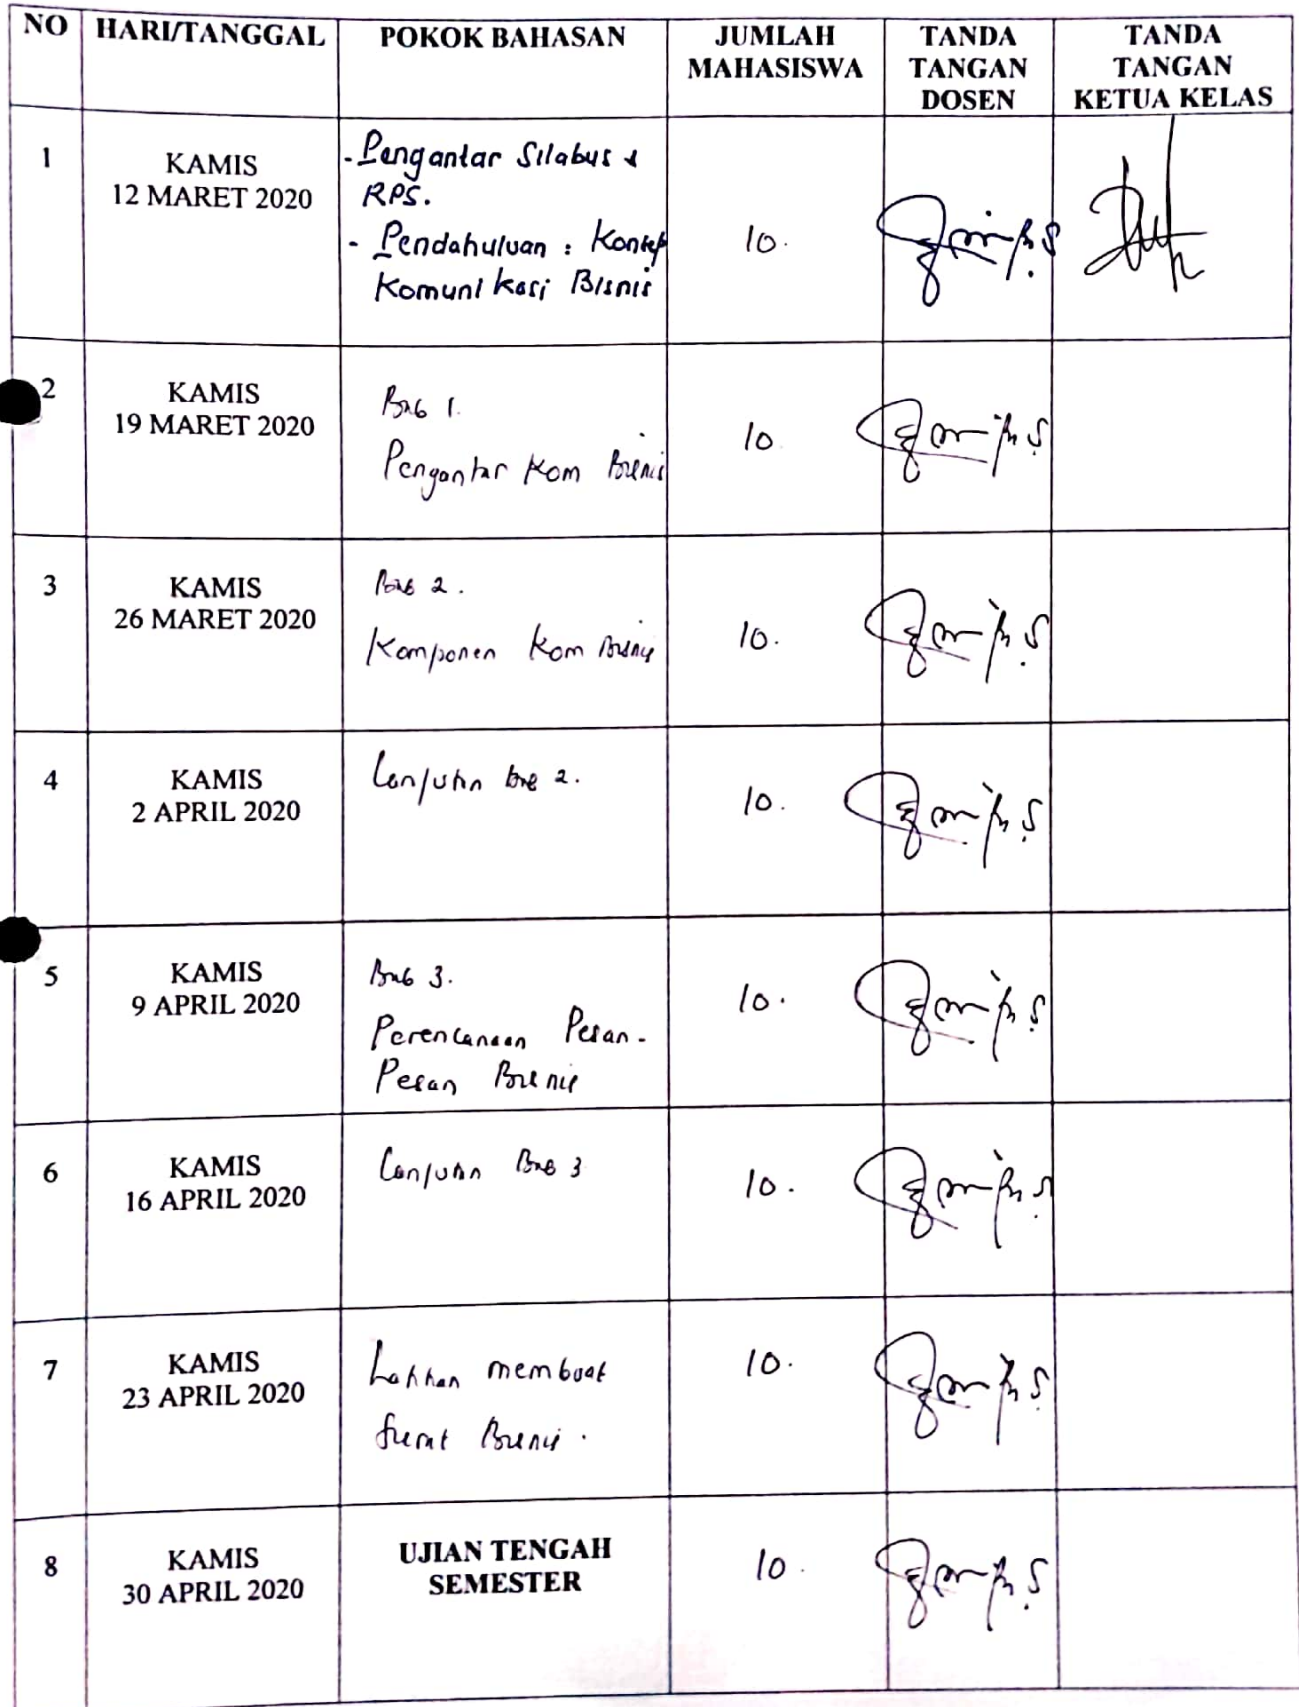 NO HARI/TANGGAL POKOK BAHASAN JUMLAH MAHASISWA TANDA TANGAN DOSEN TANDA TANGAN KETUA KELAS
1
KAMIS
12 MARET 2020
- Pengantar Silabus &
RPS.
- Pendahuluan : Konsep
Komunikasi Bisnis
10.
2
KAMIS
19 MARET 2020
Bab 1.
Pengantar Kom Bisnis
10
3
KAMIS
26 MARET 2020
Bab 2.
Komponen Kom Bisnis
10.
4
KAMIS
2 APRIL 2020
Lanjutan bab 2.
10.
5
KAMIS
9 APRIL 2020
Bab 3.
Perencanaan Pesan-
Pesan Bisnis
10.
6
KAMIS
16 APRIL 2020
Lanjutan Bab 3
10.
7
KAMIS
23 APRIL 2020
Latihan membuat
Surat Bisnis.
10.
8
KAMIS
30 APRIL 2020
UJIAN TENGAH
SEMESTER
10.